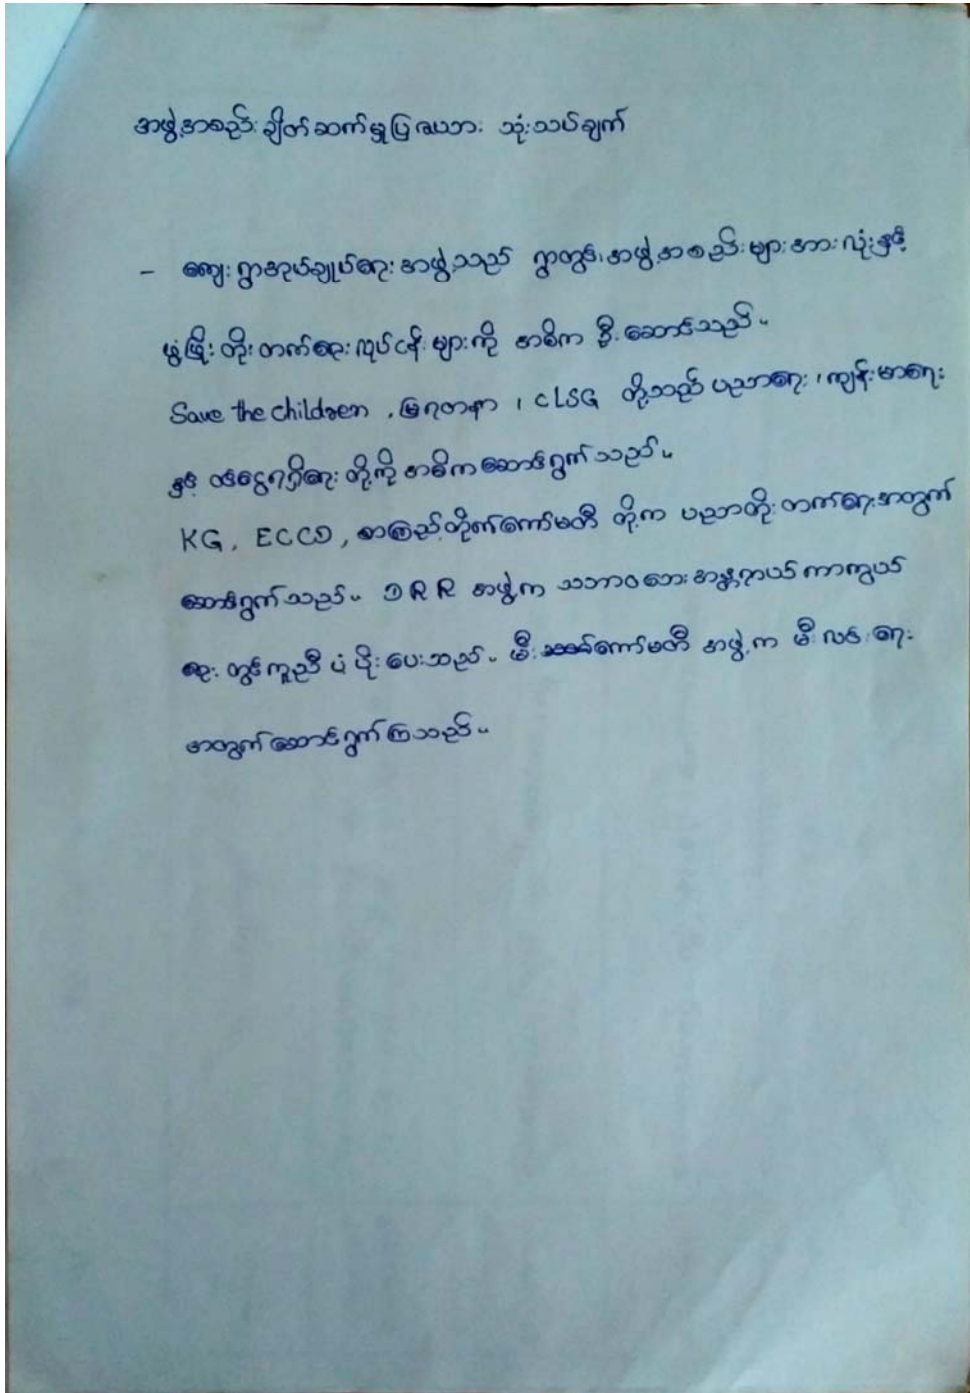 အဖွဲ့အစည်းချိတ်ဆက်မှုပြဇယား သုံးသပ်ချက်
- ကျေးရွာအုပ်ချုပ်ရေးအဖွဲ့သည် ရွာတွင်းအဖွဲ့အစည်းများအားလုံးနှင့်
ဖွံ့ဖြိုးတိုးတက်ရေးလုပ်ငန်းများကို အဓိကဦးဆောင်သည်။
Save the children , မြရတနာ ၊ CLSG တို့သည် ပညာရေး ၊ ကျန်းမာရေး
နှင့် ဝင်ငွေရရှိရေး တို့ကို အဓိကဆောင်ရွက်သည်။
KG, ECCD, စာကြည့်တိုက်ကော်မတီ တို့က ပညာတိုးတက်ရေးအတွက်
ဆောင်ရွက်သည်။ DRR အဖွဲ့က သဘာဝဘေးအန္တရာယ်ကာကွယ်
ရေးတွင်ကူညီပံ့ပိုးပေးသည်။ မီးကော်မတီ အဖွဲ့က မီးလင်းရေး
အတွက်ဆောင်ရွက်ကြသည်။